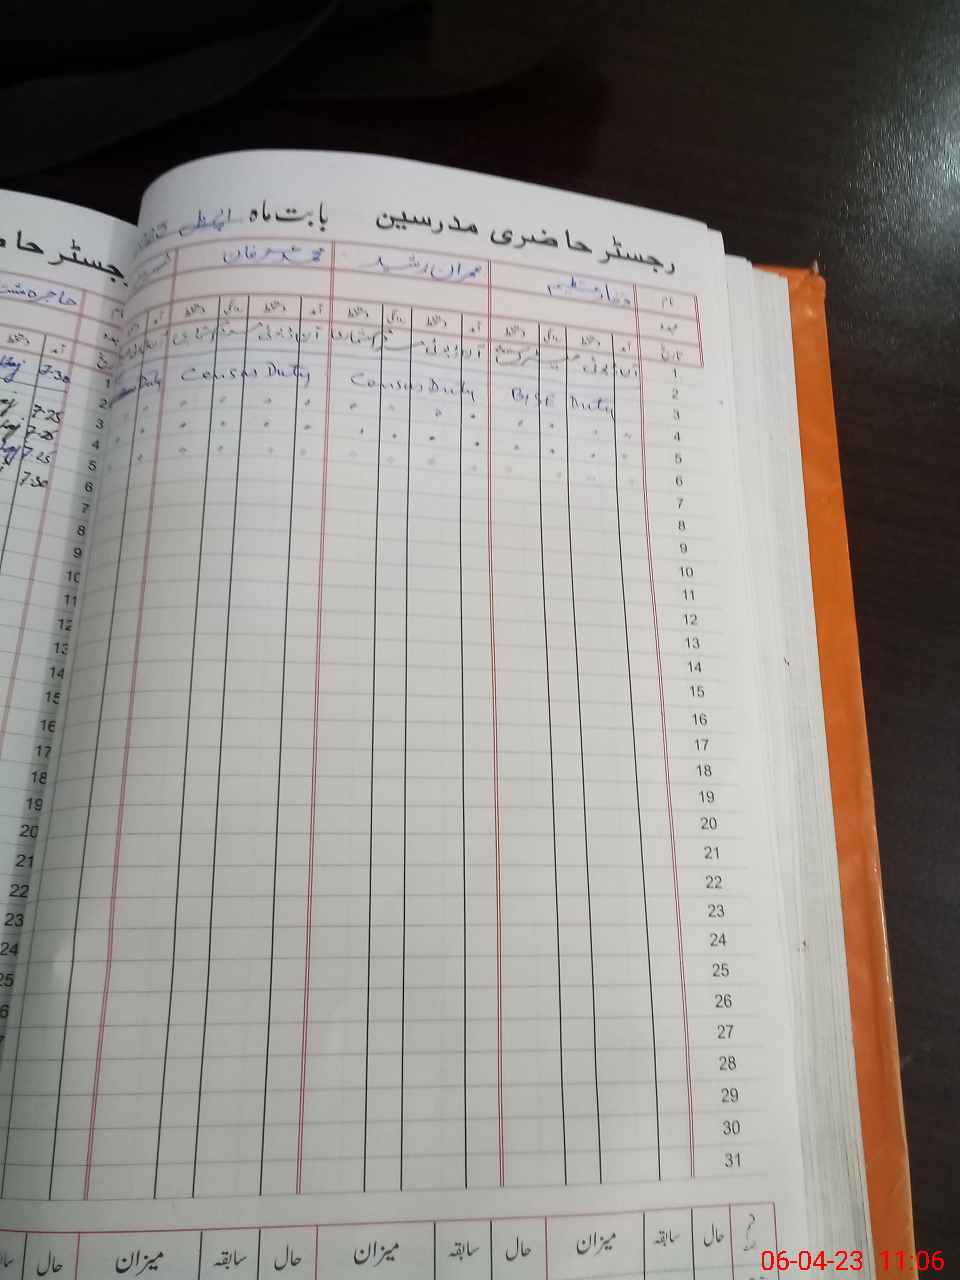 رجسٹر حاضری مدرسین بابت ماہ اپریل
نام وقار عظیم عمران رشید محمد عرفان
عہدہ
تاریخ آمد دستخط روانگی دستخط آمد دستخط روانگی دستخط آمد دستخط روانگی دستخط
1 آن ڈیوٹی آن ڈیوٹی مردم شماری آن ڈیوٹی مردم شماری
2 BISE Duty Census Duty Census Duty Duty
3
4
5
6
7
8
9
10
11
12
13
14
15
16
17
18
19
20
21
22
23
24
25
26
27
28
29
30
31
حال سابقہ میزان حال سابقہ میزان حال سابقہ میزان حال
رجسٹر
1 7.30
2
3 7.25
4 7.25
5 7.25
6 7.30
7
8
9
10
11
12
13
14
15
16
17
18
19
20
21
22
23
24
06-04-23 11:06